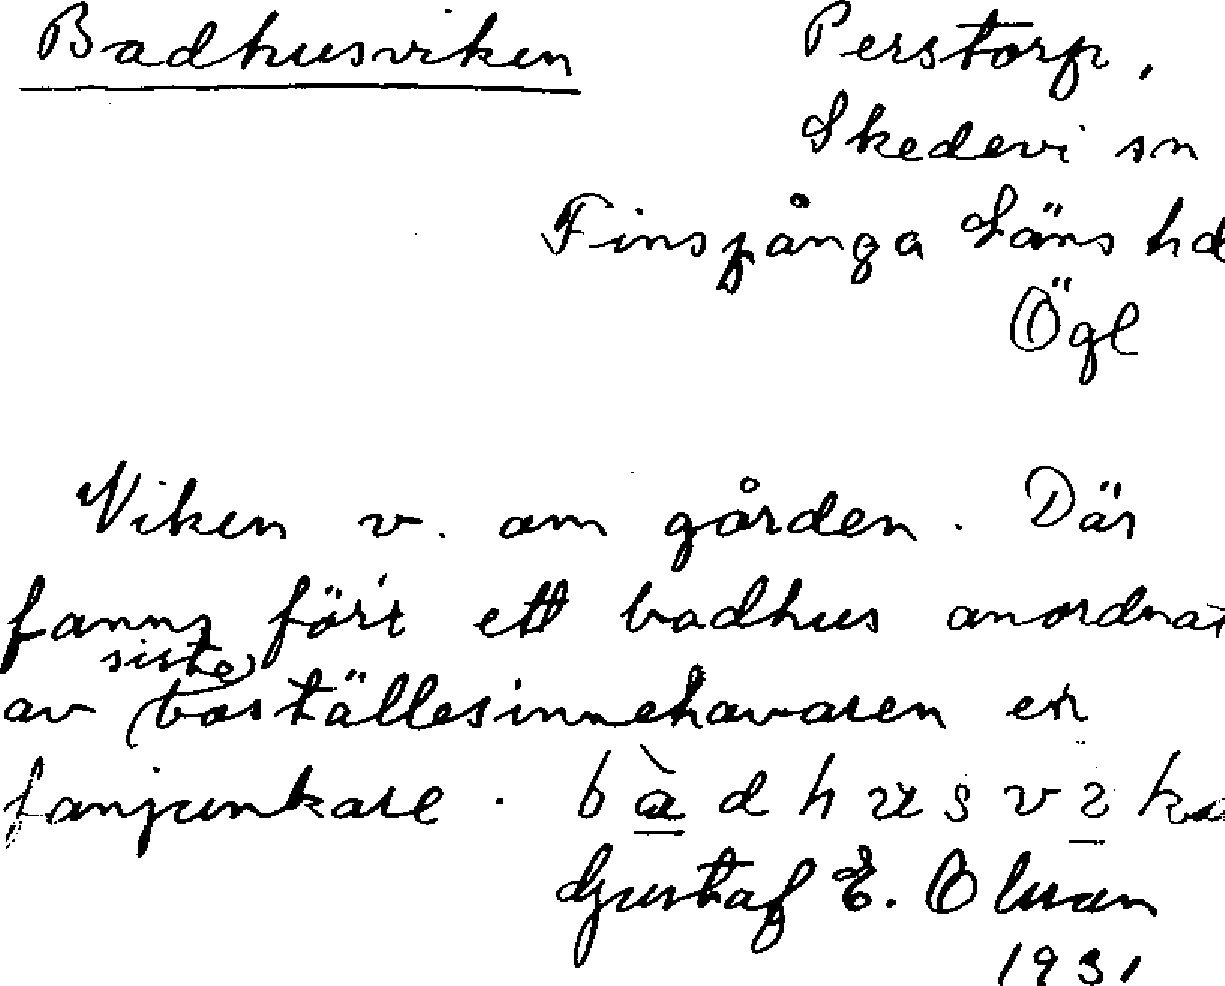 Badhusviken Perstorp,
Skedevi sn
Finspånga Läns hd
Ögl
Viken v. om gården. Där
fanns förr ett badhus anordnat
siste
av boställesinnehavaren en
fanjunkare.
Gustaf E. Olson
1931